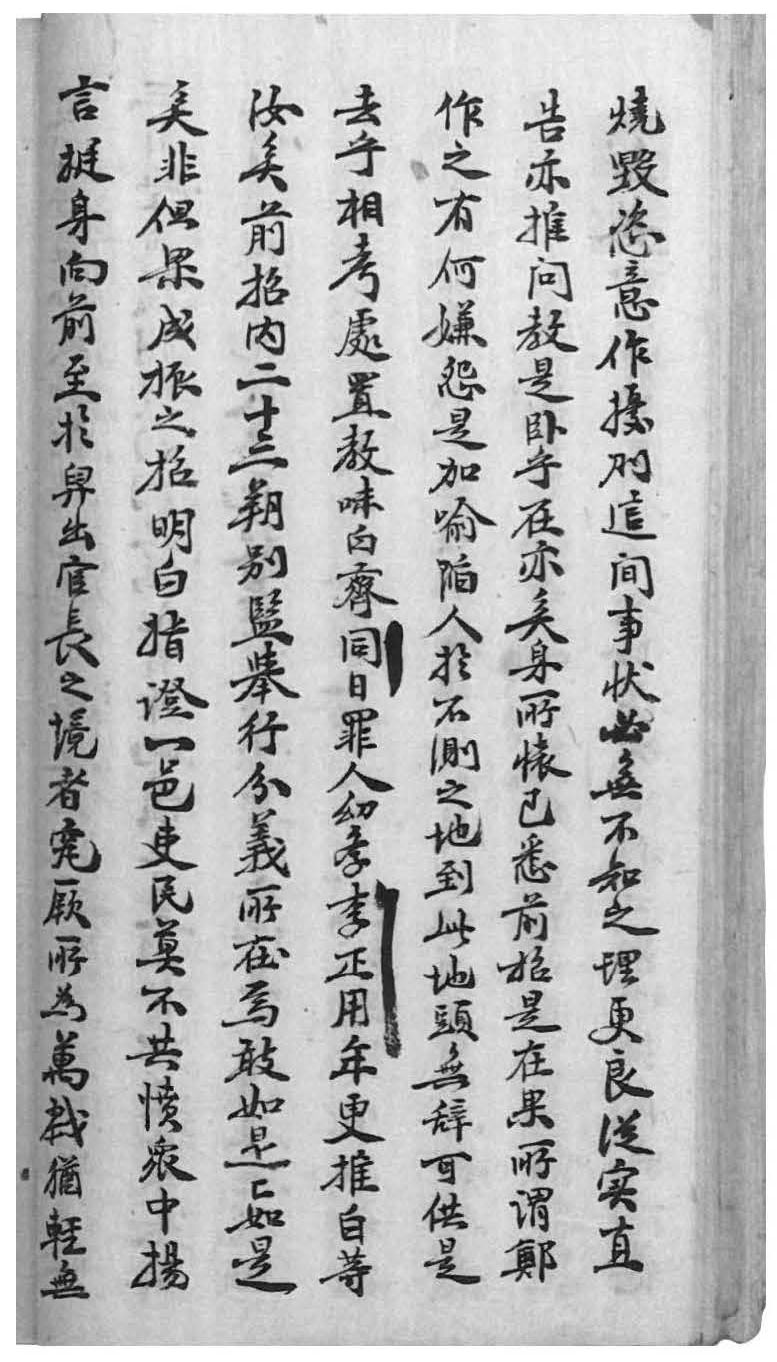 燒毁恣意作擾則這間事狀必無不知之理更良從实直
告亦推問敎是卧乎在亦矣身所懷已悉前招是在果所謂鄭
作之有何嫌怨是加喩陷人於不測之地到此地頭無辞可供是
去乎相考處置敎味白齊同日罪人幼學李正用年更推白等
汝矣前招內二十三朔別監擧行分義所在焉敢如是〻如是
矣非但果成振之招明白指證一邑吏民莫不共憤衆中揚
言挺身向前至於舁出官長之境者究厥所爲萬戮猶輕無